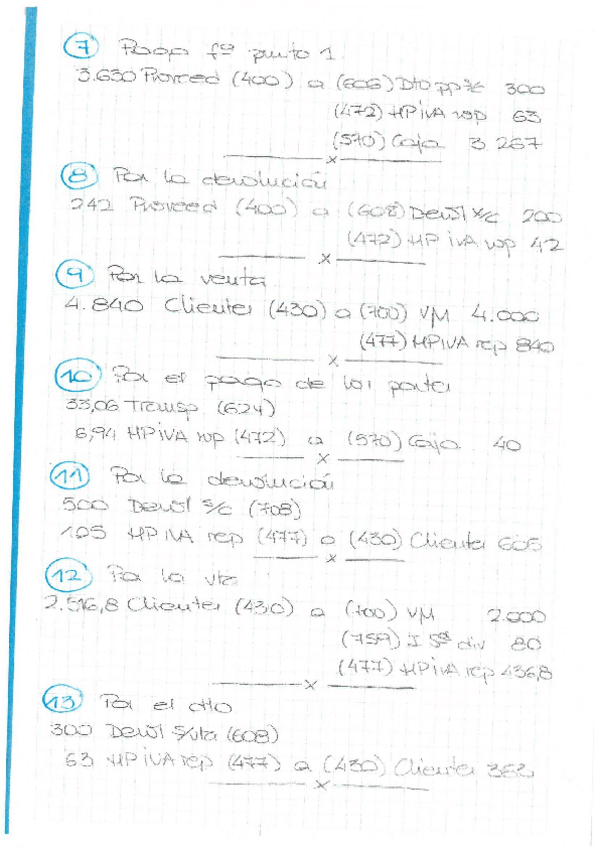 7 Pago fra punto 1
3.630 Proveed (400) a (606) Dto pp s/c 300
(472) HP iVA sop 63
(570) Caja 3 267
x
8 Por la devolución
242 Proveed (400) a (608) Devol s/c 200
(472) HP iVA sop 42
x
9 Por la venta
4.840 Clientes (430) a (700) VM 4.000
(477) HPIVA rep 840
x
10 Por el pago de los portes
33,06 Transp (624)
6,94 HPiVA sop (472) a (570) Caja 40
x
11 Por la devolución
500 Devol s/c (708)
105 HP IVA rep (477) a (430) Clientes 605
x
12 Por la vta
2.516,8 Clientes (430) a (700) VM 2.000
(759) I Sos div 80
(477) HPIVA rep 436,8
x
13 Por el dto
300 Devol s/vta (608)
63 HPiVA rep (477) a (430) Clientes 363
x